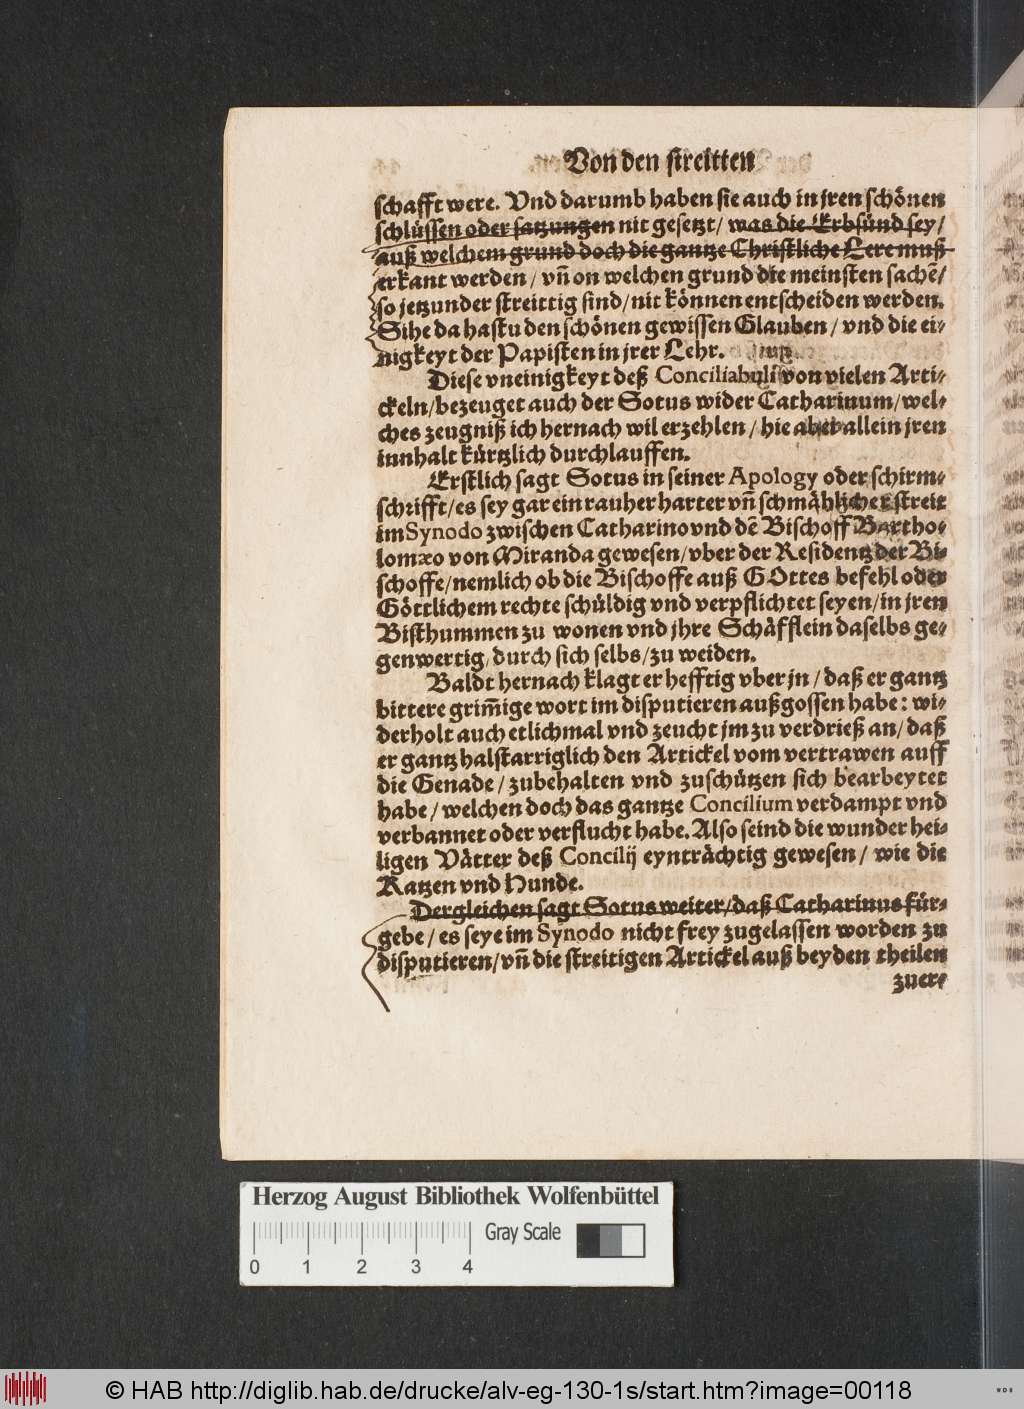 Von den streitten
schafft were. Vnd darumb haben sie auch in jren schönen
schlüssen oder satzungen nit gesetzt/ was die Erbsünd sey/
auß welchem grund doch die gantze Christliche Lere muß
erkant werden/ vn̄ on welchen grund die meinsten sachē/
so jetzunder streittig sind/ nit können entscheiden werden.
Sihe da hastu den schönen gewissen Glauben/ vnd die ei-
nigkeyt der Papisten in jrer Lehr.
Diese vneinigkeyt deß Conciliabuli von vielen Arti-
ckeln/ bezeuget auch der Sotus wider Catharinum/ wel-
ches zeugniß ich hernach wil erzehlen/ hie aber allein jren
innhalt kürtzlich durchlauffen.
Erstlich sagt Sotus in seiner Apology oder schirm-
schrifft/ es sey gar ein rauher harter vn̄ schmählicher streit
im Synodo zwischen Catharino vnd dē Bischoff Bartho-
lomæo von Miranda gewesen/ vber der Residentz der Bi-
schoffe/ nemlich ob die Bischoffe auß GOttes befehl oder
Göttlichem rechte schüldig vnd verpflichtet seyen/ in jren
Bisthummen zu wonen vnd jhre Schäfflein daselbs ge-
genwertig/ durch sich selbs/ zu weiden.
Baldt hernach klagt er hefftig vber jn/ daß er gantz
bittere grim̄ige wort im disputieren außgossen habe: wi-
derholt auch etlichmal vnd zeucht jm zu verdrieß an/ daß
er gantz halstarriglich den Artickel vom vertrawen auff
die Genade/ zubehalten vnd zuschützen sich bearbeytet
habe/ welchen doch das gantze Concilium verdampt vnd
verbannet oder verflucht habe. Also seind die wunder hei-
ligen Vätter deß Concilij eynträchtig gewesen/ wie die
Katzen vnd Hunde.
Dergleichen sagt Sotus weiter/ daß Catharinus für-
gebe/ es seye im Synodo nicht frey zugelassen worden zu
disputieren/ vn̄ die streitigen Artickel auß beyden theilen
zuer-
Herzog August Bibliothek Wolfenbüttel
Gray Scale
0 1 2 3 4
© HAB http://diglib.hab.de/drucke/alv-eg-130-1s/start.htm?image=00118